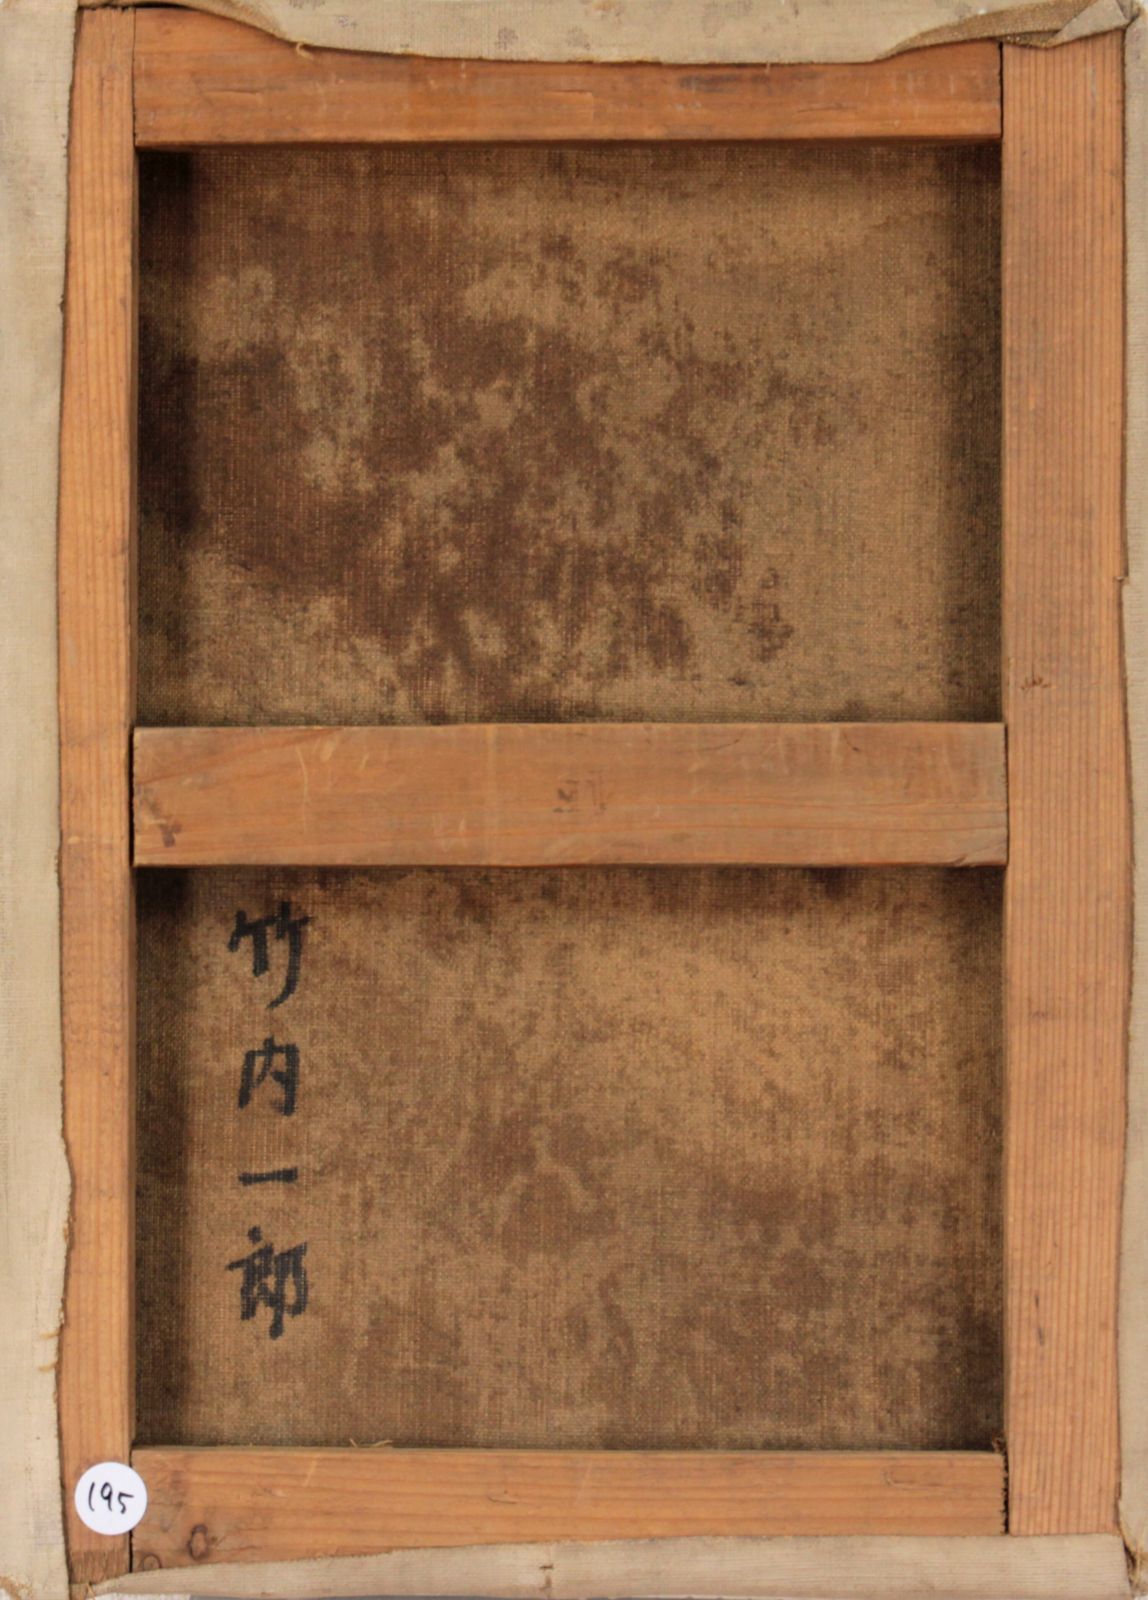 竹内一郎
195